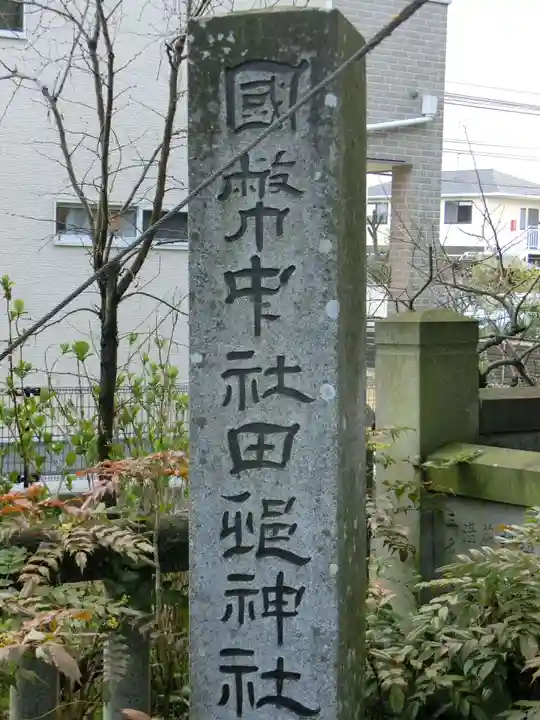 國幣中社田𧏛神社